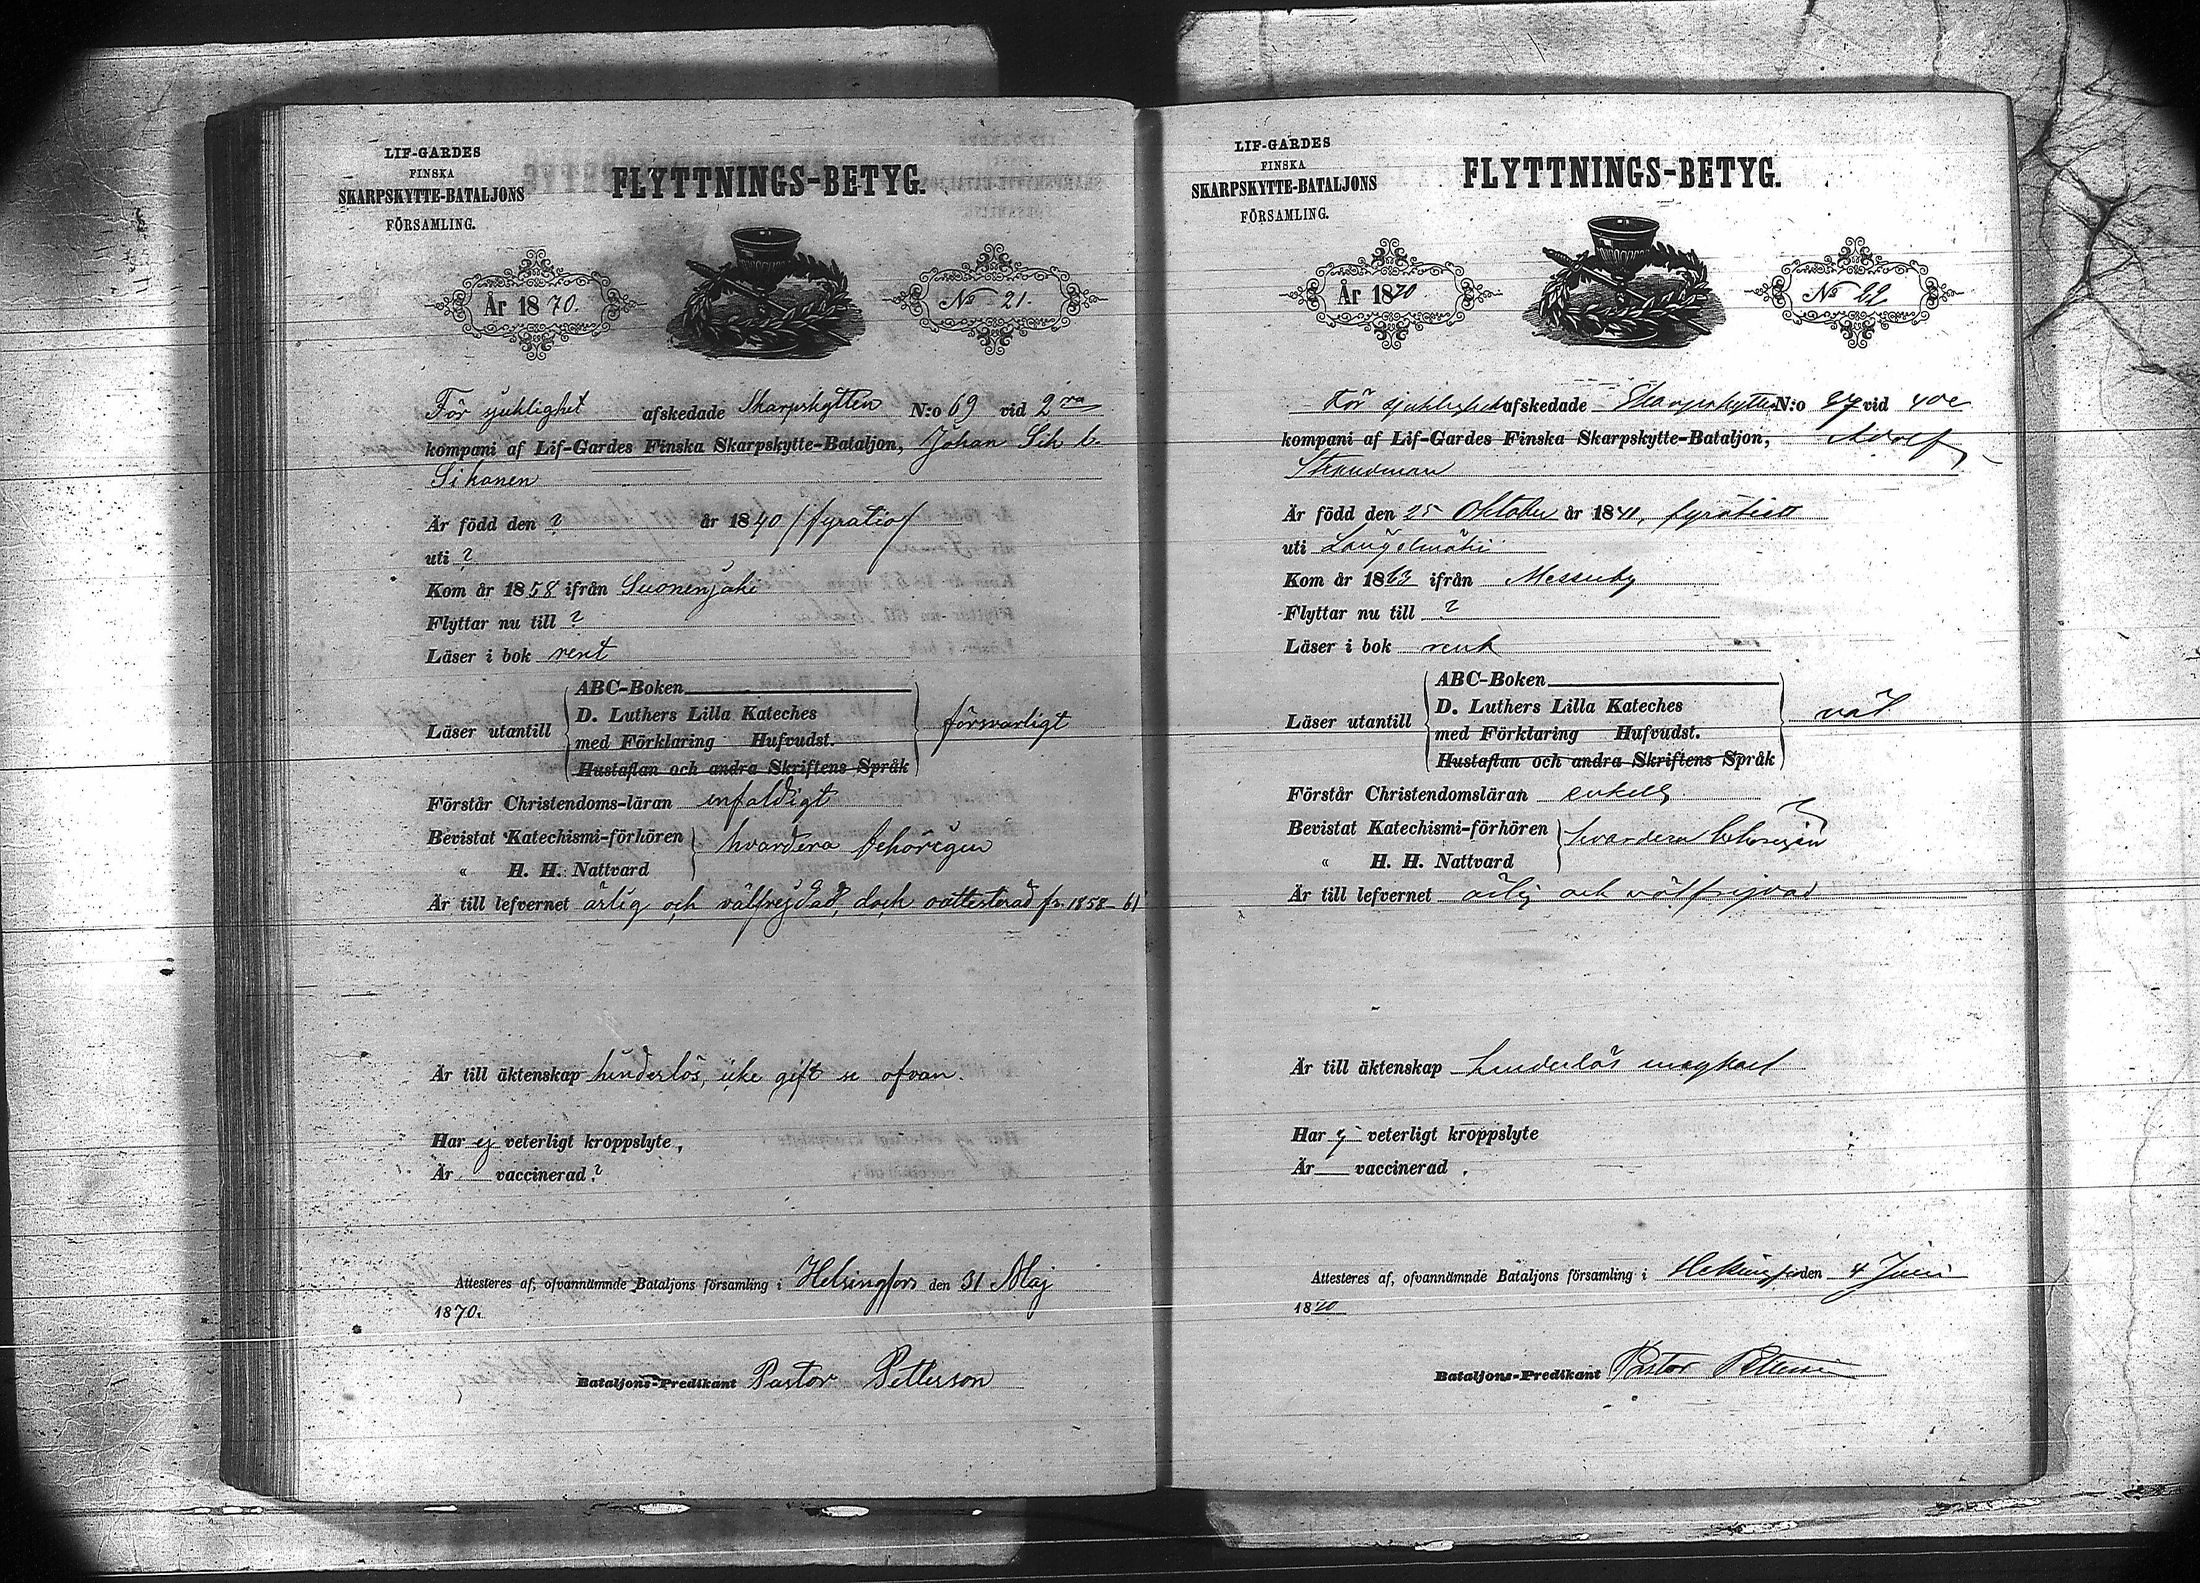 LIF-GARDES
FINSKA
SKARPSKYTTE-BATALJONS
FÖRSAMLING.
FLYTTNINGS-BETYG.
År 1870.
No 21.
För sjuklighet afskedade Skarpskytten N:o 69 vid 2ra
kompani af Lif-Gardes Finska Skarpskytte-Bataljon, Johan
Sikanen
Är född den ? år 1840 /fyratio/
uti ?
Kom år 1858 ifrån Suonenjoki
Flyttar nu till ?
Läser i bok rent
Läser utantill
ABC-Boken
D. Luthers Lilla Kateches
med Förklaring Hufvudst.
Hustaflan och andra Skriftens Språk
försvarligt
Förstår Christendoms-läran enfaldigt
Bevistat Katechismi-förhören
" H. H. Nattvard
hvardera behörigen
Är till lefvernet ärlig och välfrejdad, dock oattesterad fr. 1858-61
Är till äktenskap hinderlös, icke gift se ofvan.
Har ej veterligt kroppslyte,
Är vaccinerad ?
Attesteres af, ofvannämnde Bataljons församling i Helsingfors den 31 Maj
1870.
Bataljons-Predikant Pastor Petterson
LIF-GARDES
FINSKA
SKARPSKYTTE-BATALJONS
FÖRSAMLING.
FLYTTNINGS-BETYG.
År 1870
No 22
För sjuklighet afskedade Skarpskytten N:o 27 vid 4de
kompani af Lif-Gardes Finska Skarpskytte-Bataljon, Adolf
Strandman
Är född den 25 Oktober år 1841, fyratioett
uti Längelmäki
Kom år 1863 ifrån Messuby
Flyttar nu till ?
Läser i bok rent
Läser utantill
ABC-Boken
D. Luthers Lilla Kateches
med Förklaring Hufvudst.
Hustaflan och andra Skriftens Språk
väl
Förstår Christendomsläran enkelt
Bevistat Katechismi-förhören
" H. H. Nattvard
hvardera behörigen
Är till lefvernet ärlig och välfrejdad
Är till äktenskap hinderlös ungkarl
Har ej veterligt kroppslyte
Är vaccinerad.
Attesteres af, ofvannämnde Bataljons församling i Helsingfors den 4 Juni
1870
Bataljons-Predikant Pastor Petterson